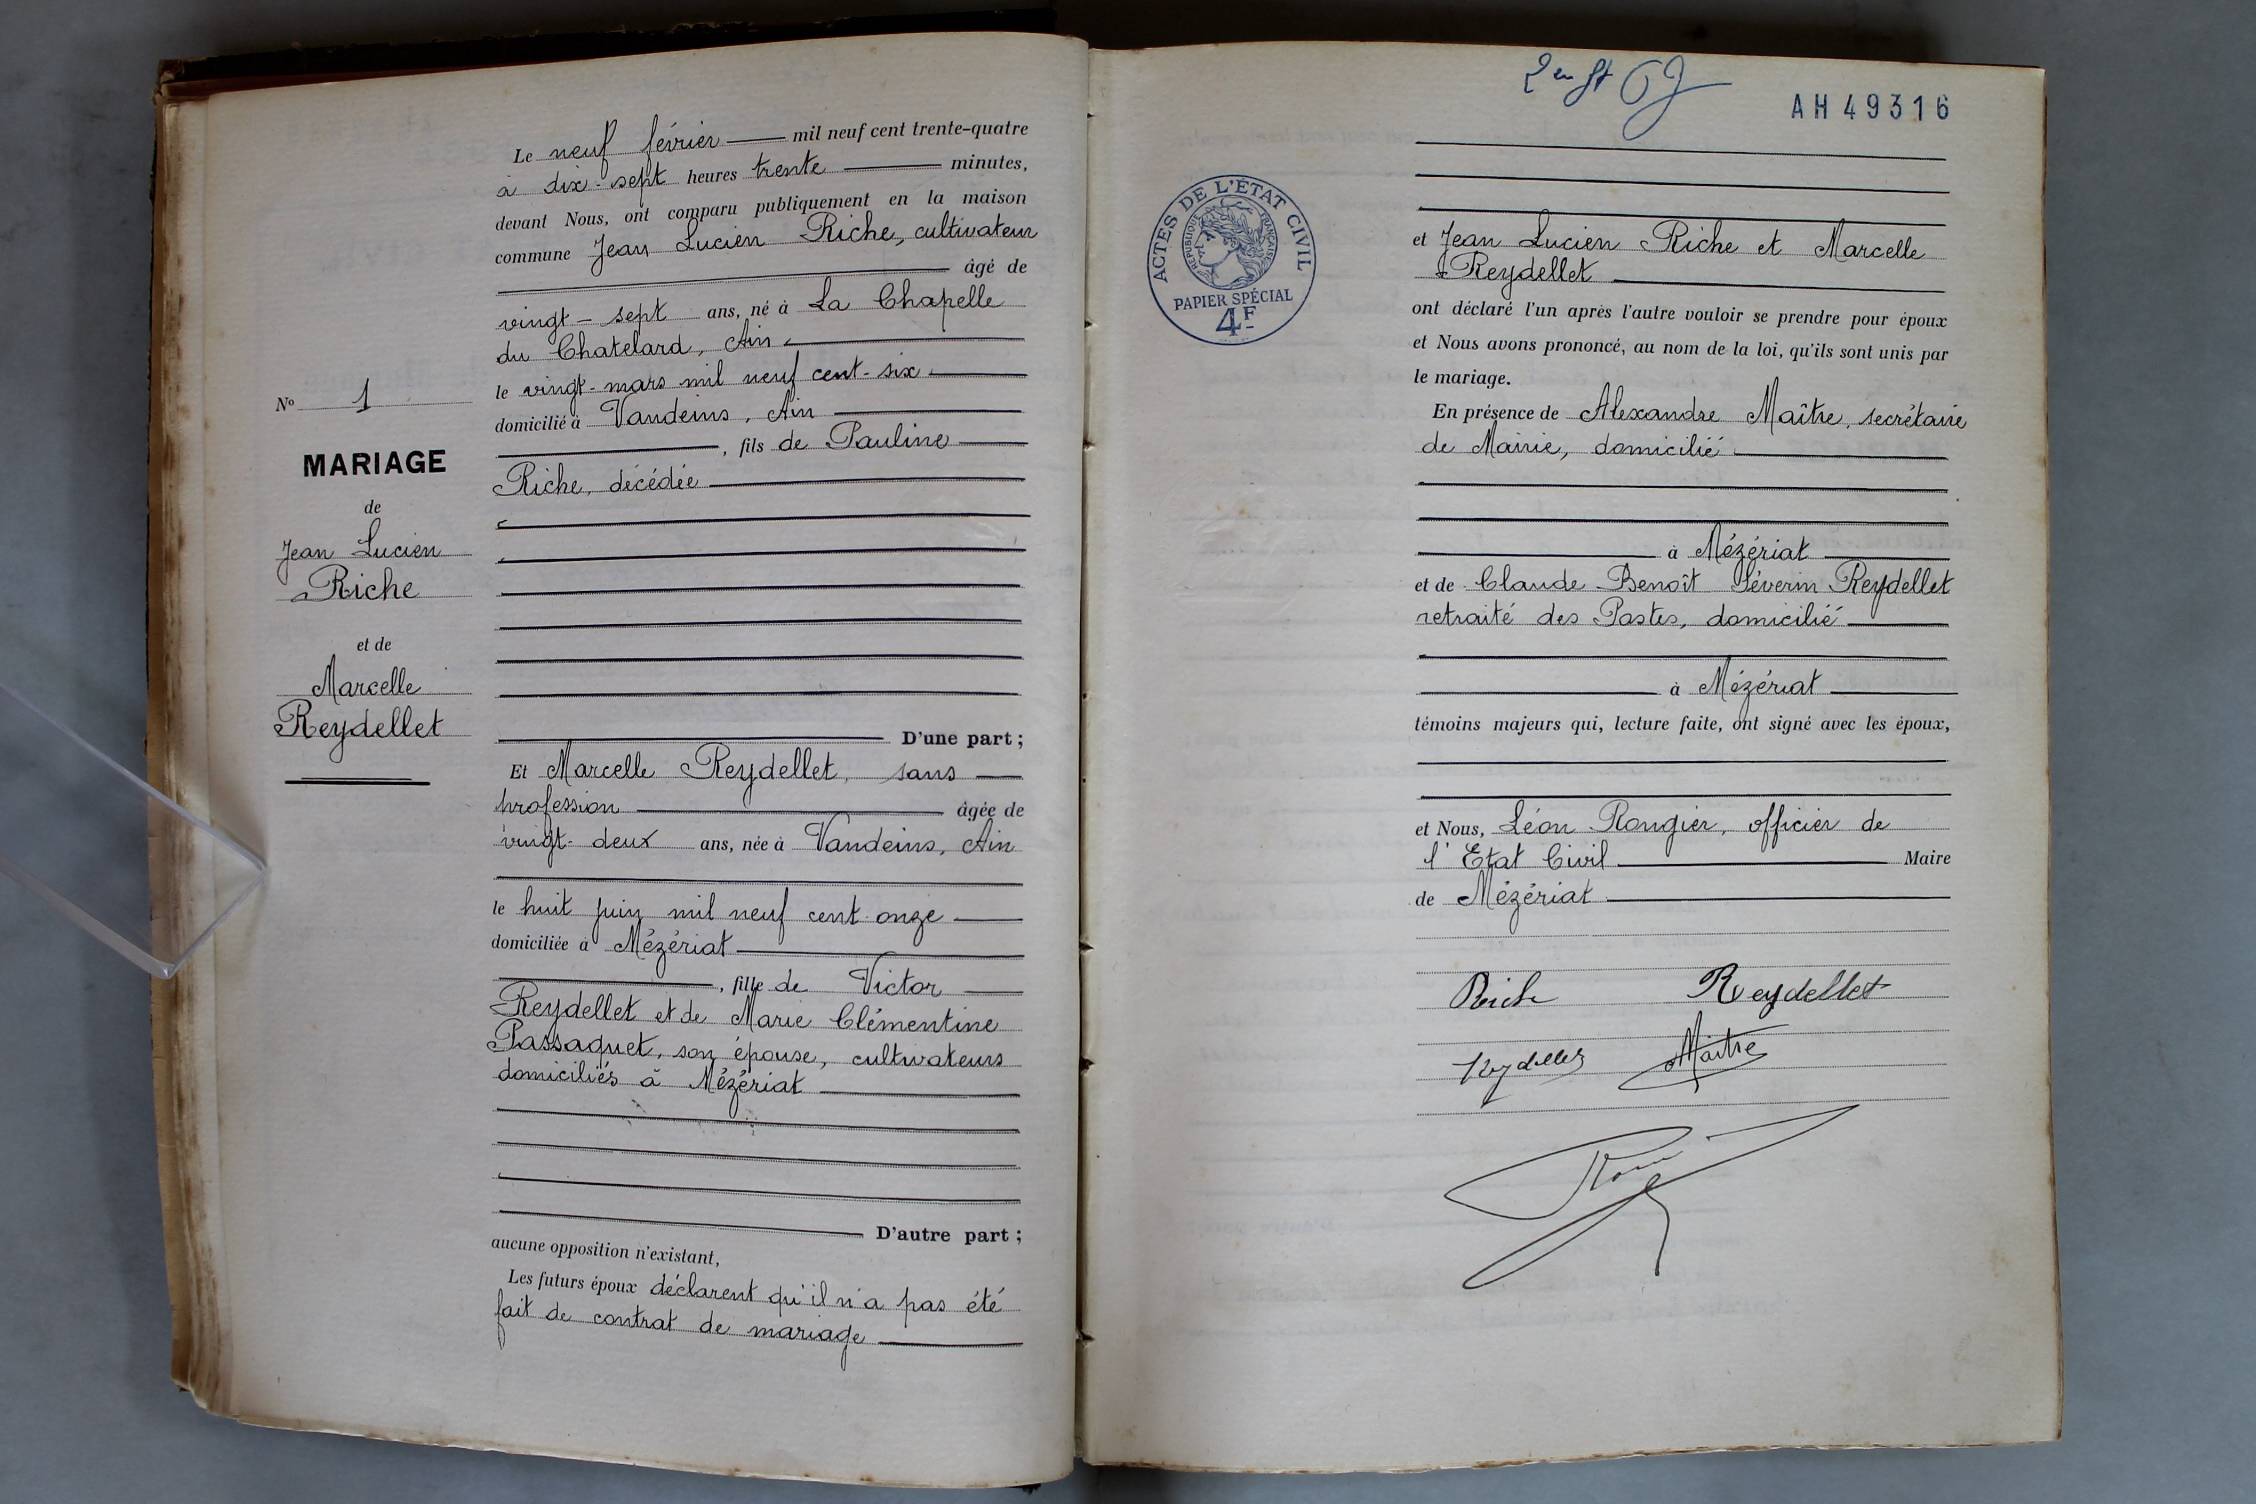 N° 1
MARIAGE
de
Jean Lucien
Riche
et de
Marcelle
Reydellet
Le neuf février mil neuf cent trente-quatre
à dix-sept heures trente minutes,
devant Nous, ont comparu publiquement en la maison
commune Jean Lucien Riche, cultivateur
âgé de
vingt-sept ans, né à La Chapelle
du Chatelard, Ain
le vingt-mars mil neuf cent-six
domicilié à Vandeins, Ain
, fils de Pauline
Riche, décédée
D'une part ;
Et Marcelle Reydellet, sans
profession âgée de
vingt-deux ans, née à Vandeins, Ain
le huit juin mil neuf cent onze
domiciliée à Mézériat
, fille de Victor
Reydellet et de Marie Clémentine
Passaquet, son épouse, cultivateurs
domiciliés à Mézériat
D'autre part ;
aucune opposition n'existant,
Les futurs époux déclarent qu'il n'a pas été
fait de contrat de mariage
AH 49316
ACTES DE L'ÉTAT CIVIL
RÉPUBLIQUE FRANÇAISE
PAPIER SPÉCIAL
4F
et Jean Lucien Riche et Marcelle
Reydellet
ont déclaré l'un après l'autre vouloir se prendre pour époux
et Nous avons prononcé, au nom de la loi, qu'ils sont unis par
le mariage.
En présence de Alexandre Maître, secrétaire
de Mairie, domicilié
à Mézériat
et de Claude Benoît Séverin Reydellet
retraité des Postes, domicilié
à Mézériat
témoins majeurs qui, lecture faite, ont signé avec les époux,
et Nous, Léon Rongier, officier de
l'Etat Civil Maire
de Mézériat
Riche Reydellet
Reydellet Maître